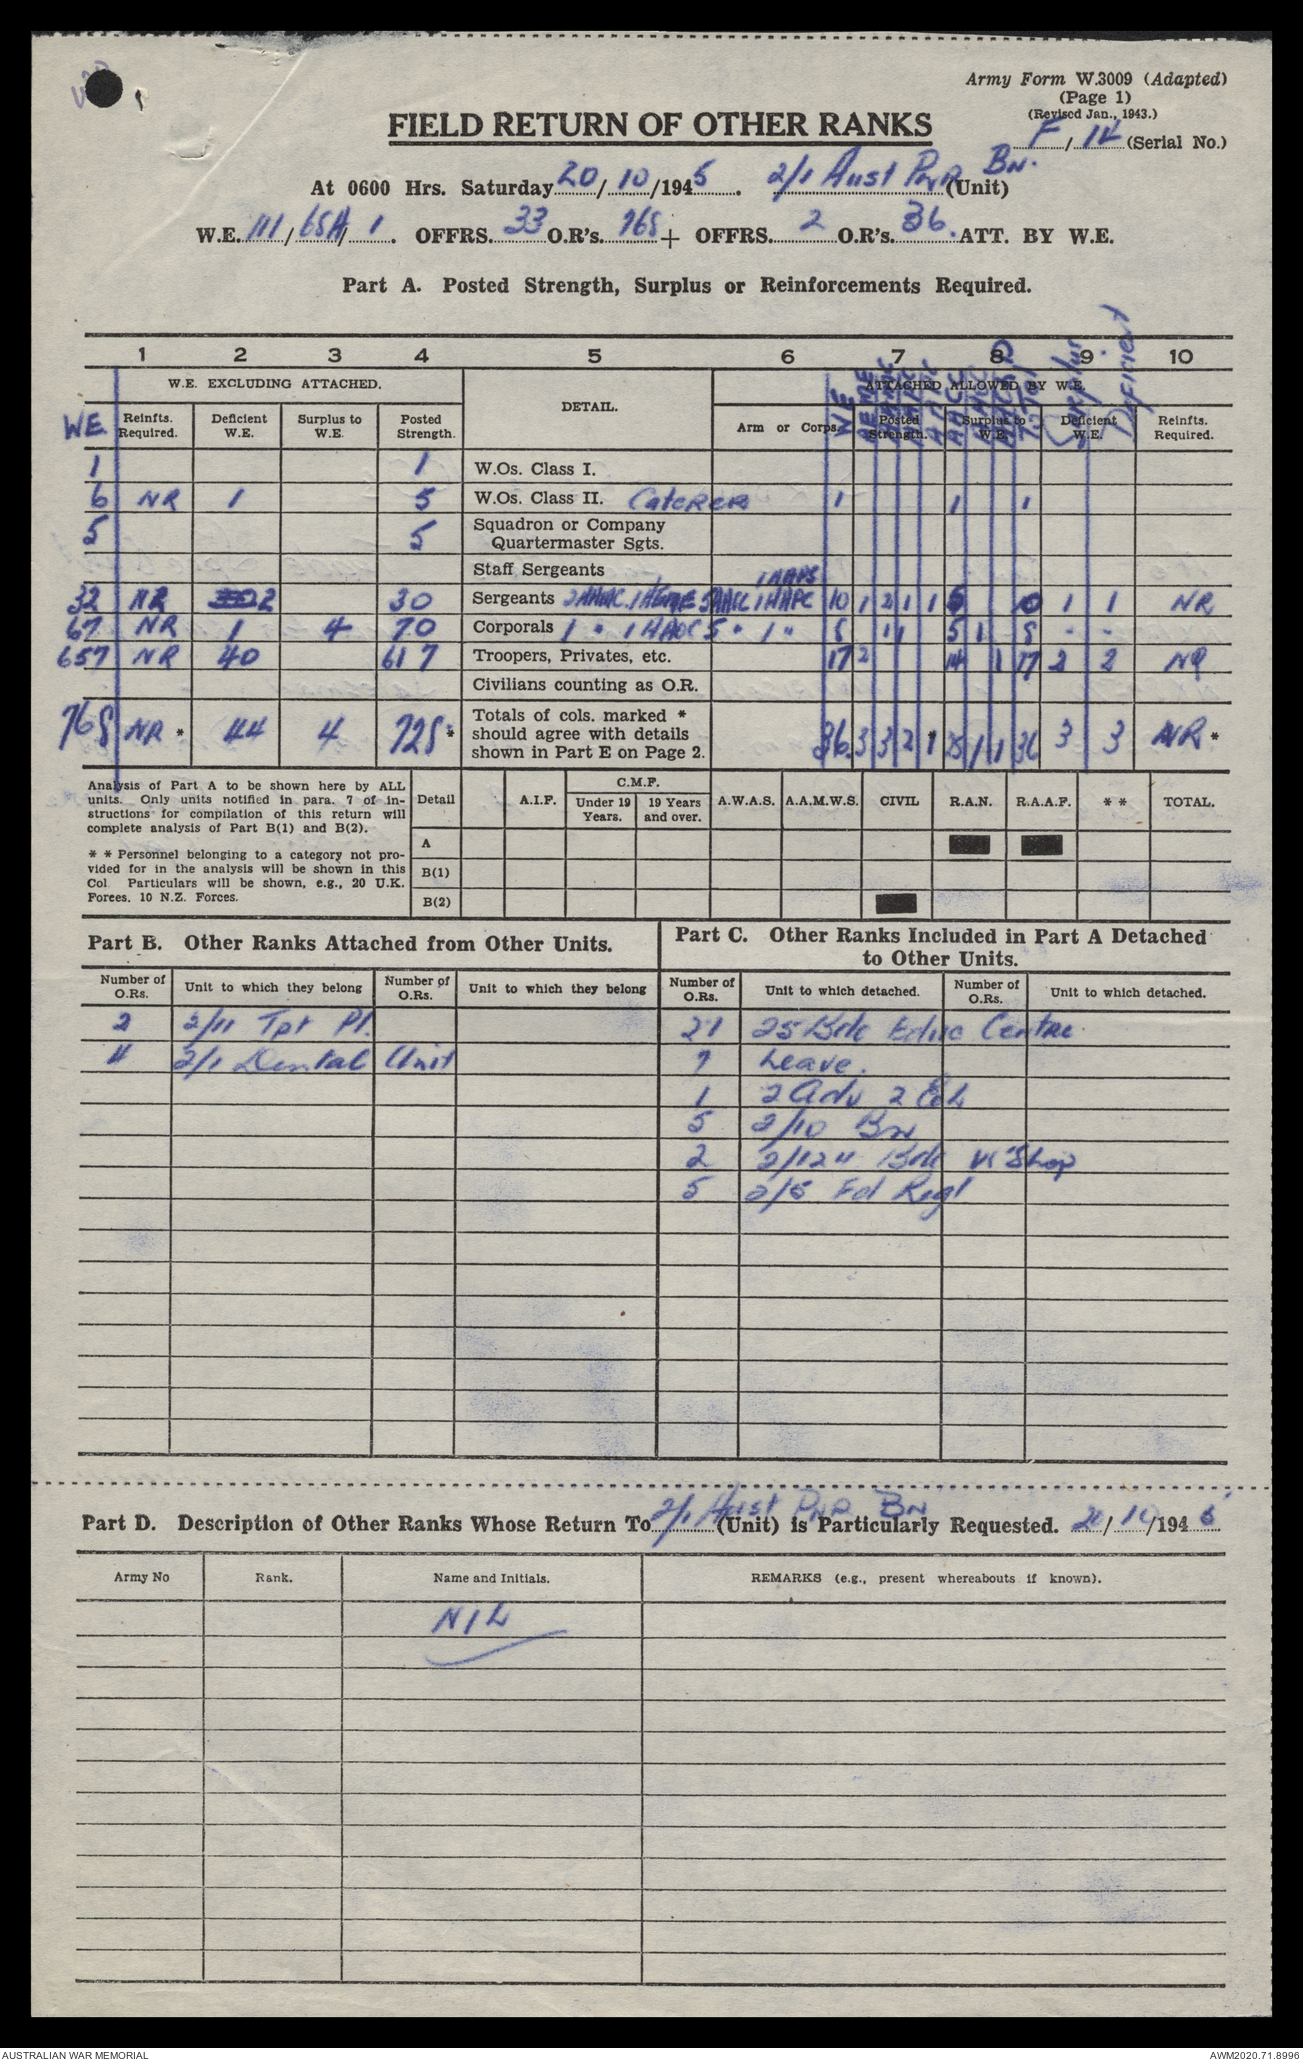 Army Form W.3009 (Adapted)
(Page 1)
(Revised Jan., 1943.)
FIELD RETURN OF OTHER RANKS
F/14 (Serial No.)
At 0600 Hrs. Saturday 20/10/1945. 2/1 Aust Pnr Bn. (Unit)
W.E. 111/65A/1. OFFRS. 33 O.R's. 768 + OFFRS. 2 O.R's. 36. ATT. BY W.E.
Part A. Posted Strength, Surplus or Reinforcements Required.
1 2 3 4 5 6 7 8 9 10
W.E. EXCLUDING ATTACHED. DETAIL. ATTACHED ALLOWED BY W.E.
WE Reinfts. Required. Deficient W.E. Surplus to W.E. Posted Strength. Arm or Corps. WE Posted Strength. Surplus to W.E. Deficient W.E. Reinfts. Required.
Surplus Deficient
1 1 W.Os. Class I.
6 NR 1 5 W.Os. Class II. Caterer 1 1 1
5 5 Squadron or Company Quartermaster Sgts.
Staff Sergeants
32 NR 2 30 Sergeants 10 1 2 1 1 1 1 NR
67 NR 1 4 70 Corporals 1 " 5 " 1 " 8 1 1 5 1 8 - -
657 NR 40 617 Troopers, Privates, etc. 17 2 14 1 17 2 2 NR
Civilians counting as O.R.
768 NR * 44 4 728 * Totals of cols. marked * should agree with details shown in Part E on Page 2. 36. 3 3 2 1 * 25 1 1 36 3 3 NR *
Analysis of Part A to be shown here by ALL units. Only units notified in para. 7 of instructions for compilation of this return will complete analysis of Part B(1) and B(2).
* * Personnel belonging to a category not provided for in the analysis will be shown in this Col Particulars will be shown, e.g., 20 U.K. Forces, 10 N.Z. Forces.
Detail A.I.F. C.M.F. Under 19 Years. 19 Years and over. A.W.A.S. A.A.M.W.S. CIVIL R.A.N. R.A.A.F. * * TOTAL.
A
B(1)
B(2)
Part B. Other Ranks Attached from Other Units.
Part C. Other Ranks Included in Part A Detached to Other Units.
Number of O.Rs. Unit to which they belong Number of O.Rs. Unit to which they belong Number of O.Rs. Unit to which detached. Number of O.Rs. Unit to which detached.
2 2/11 Tpt Pl. 21 25 Bde Educ Centre
4 2/1 Dental Unit 7 Leave.
1 2 Adv 2 Ech
5 2/10 Bn
2 2/124 Bde W Shop
5 2/5 Fd Regt
Part D. Description of Other Ranks Whose Return To 2/1 Aust Pnr Bn (Unit) is Particularly Requested. 20/10/1945
Army No Rank. Name and Initials. REMARKS (e.g., present whereabouts if known).
NIL
AUSTRALIAN WAR MEMORIAL AWM2020.71.8996